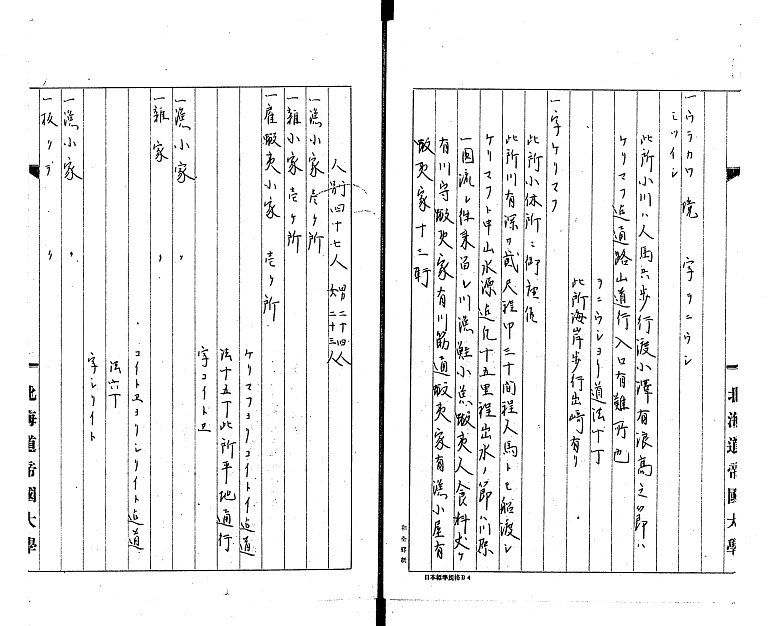 一ウラカワ境 字ヲニウシ
ミツイシ
此所小川ハ人馬共歩行渡小澤有浪高之節ハ
ケリマフ迄通路山道行入口有難所也
ヲニウシヨリ道法十丁
此所海岸歩行出崎有リ
一字ケリマフ
此所小休所ニ御座候
此所川有深サ貳尺程巾二十間程人馬トモ船渡シ
ケリマフト申山水源迄凡十五里程出水ノ節ハ川
一圓流レ件来留レ川漁鮭小魚蝦夷人食料
有川守蝦夷家有川筋通蝦夷家有漁小屋有
蝦夷家十三軒
北海道帝國大學
日本標準規格B4
人別四十七人 男二十四人 女二十三人
一漁小家 壱ヶ所
一雑小家 壱ヶ所
一雇蝦夷小家 壱ヶ所
ケリマフヨリコイトイ迄道
法十五丁此所平地通行
字コイトエ
一漁小家 〃
一雑家 〃
コイトエヨリシリイト迄道
法六丁
字シリイト
一漁小家 〃
一板クラ 〃
北海道帝國大學